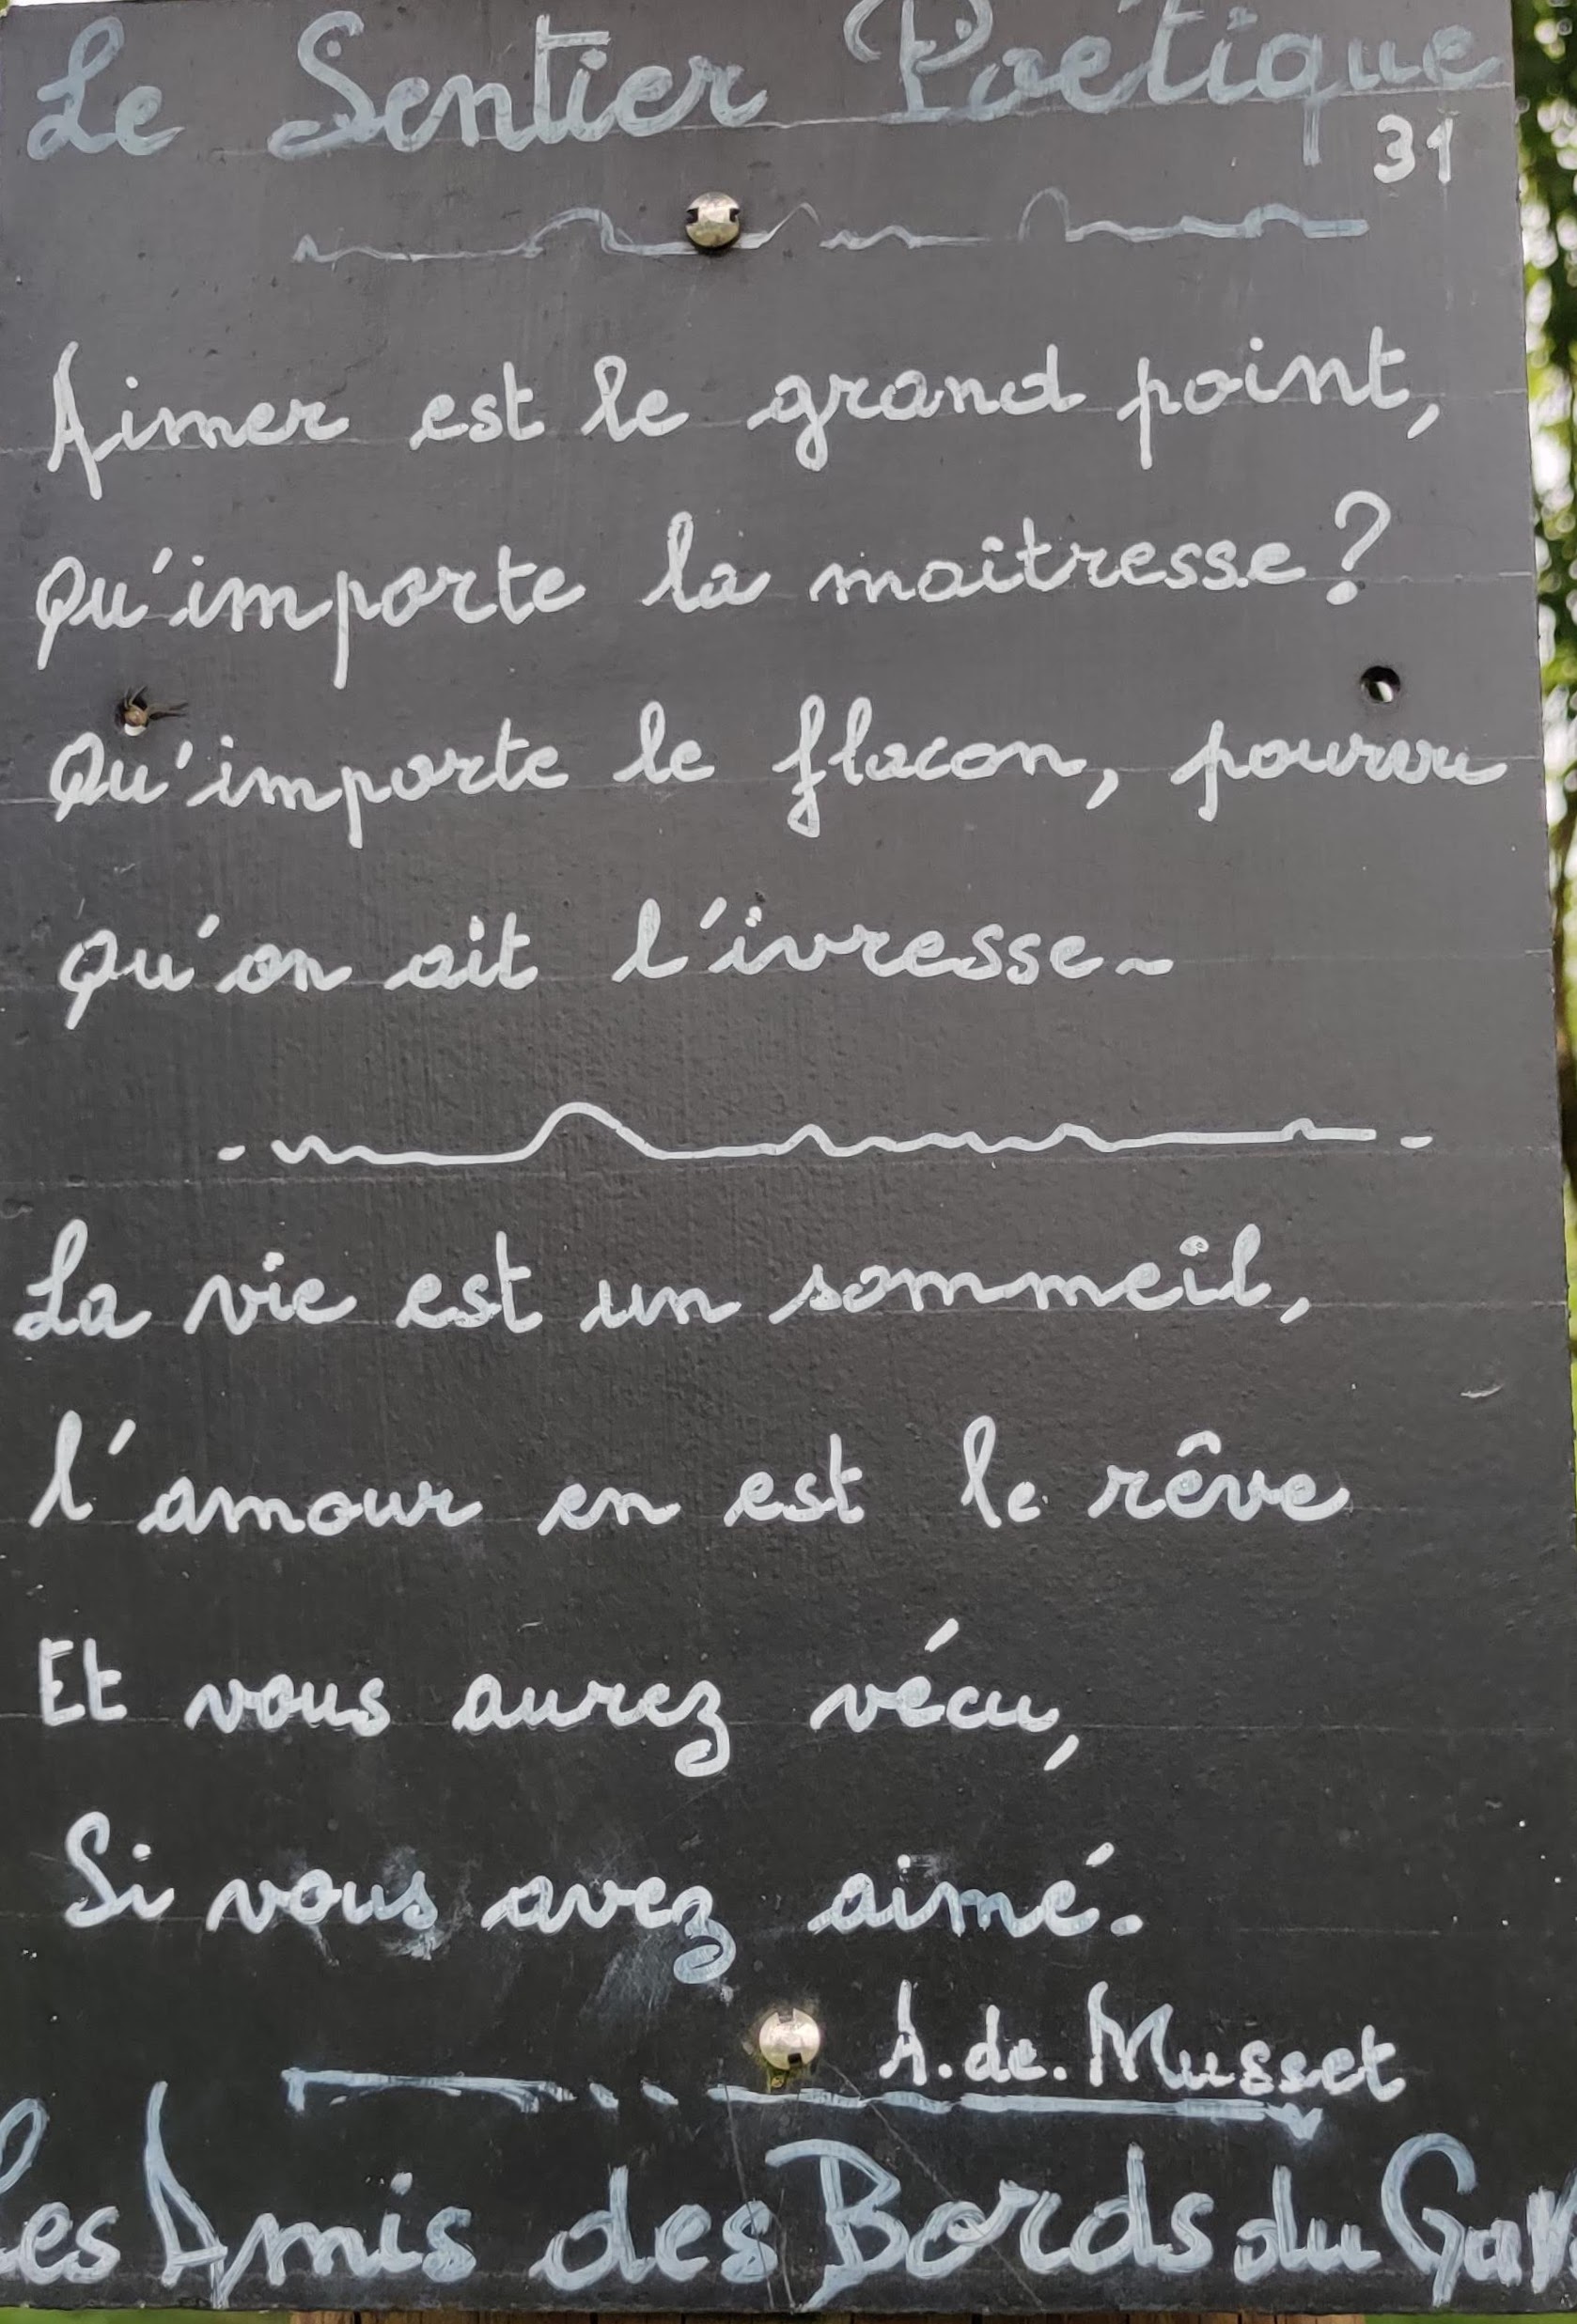 Le Sentier Poétique
31
Aimer est le grand point,
Qu'importe la maîtresse ?
Qu'importe le flacon, pourvu
qu'on ait l'ivresse~
La vie est un sommeil,
l'amour en est le rêve
Et vous aurez vécu,
Si vous avez aimé.
A. de. Musset
Les Amis des Bords du Gav